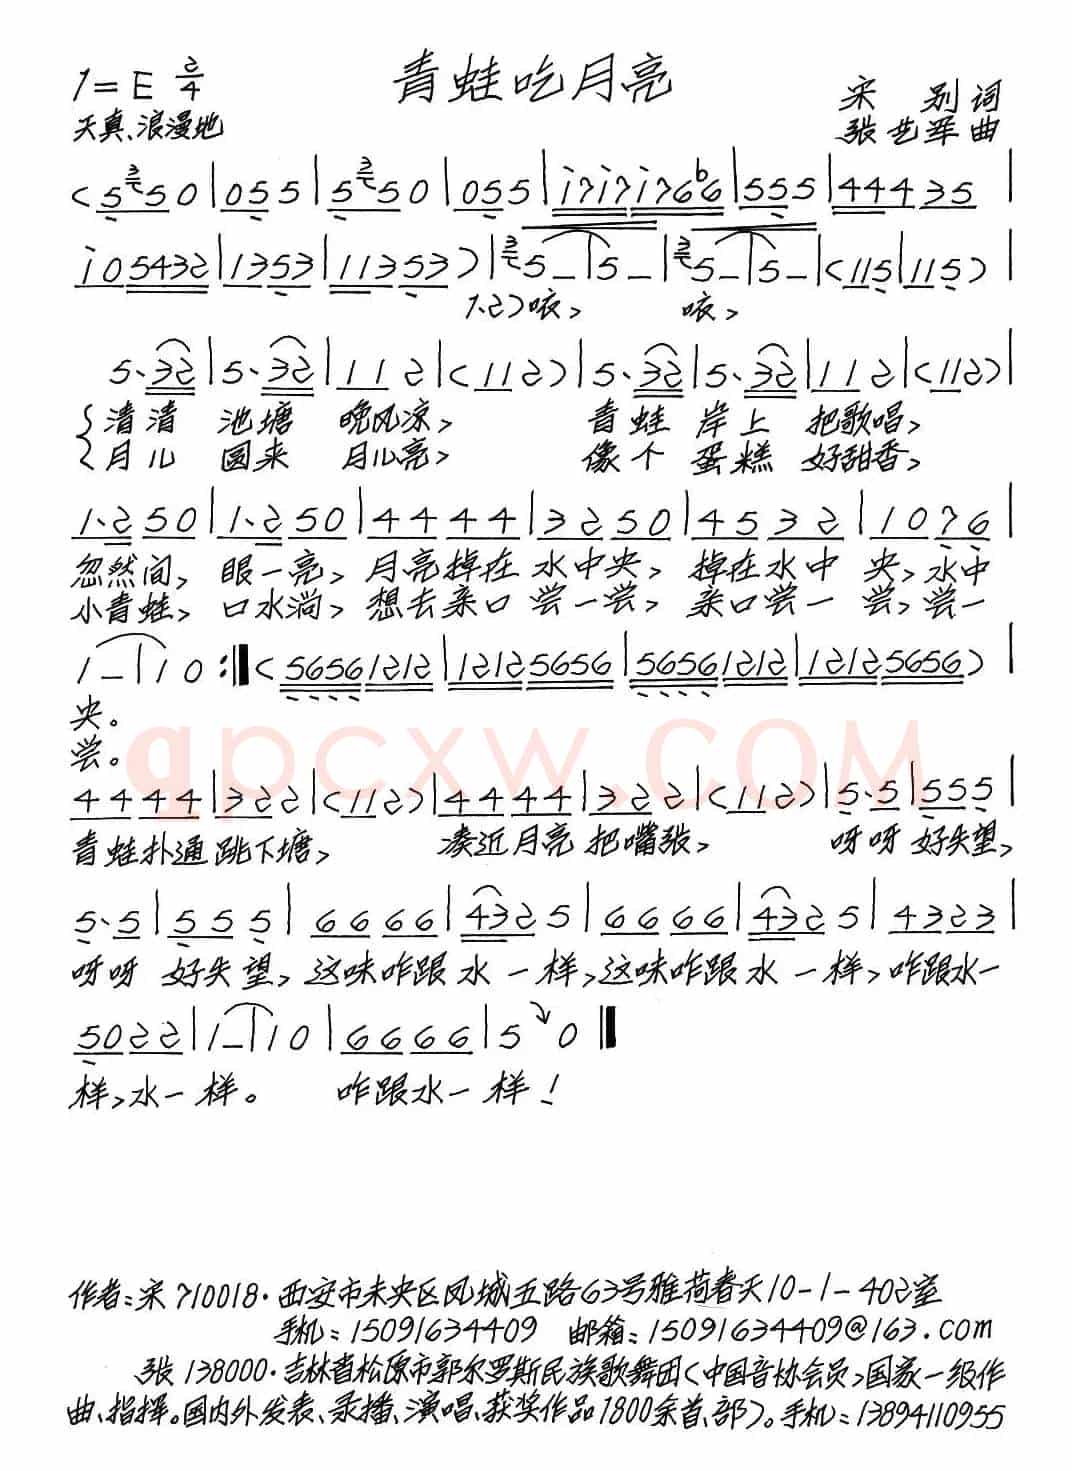 青蛙吃月亮
1=E 2/4
宋 别 词
天真、浪漫地
张艺军 曲
(5 3 5 0 | 0 5 5 | 5 3 5 0 | 0 5 5 | i 7 i 7 i 7 6 b6 | 5 5 5 | 4 4 4 3 5 |
i 0 5 4 3 2 | 1 3 5 3 | 1 1 3 5 3) | 3 5 - | 5 - | 3 5 - | 5 - | (1 1 5 | 1 1 5) |
1、2)咴, 咴,
5、3 2 | 5、3 2 | 1 1 2 | (1 1 2) | 5、3 2 | 5、3 2 | 1 1 2 | (1 1 2) |
清清 池塘 晚风凉, 青蛙 岸上 把歌唱,
月儿 圆来 月儿亮, 像个 蛋糕 好甜香,
1、2 5 0 | 1、2 5 0 | 4 4 4 4 | 3 2 5 0 | 4 5 3 2 | 1 0 7 6 |
忽然间, 眼一亮, 月亮掉在 水中央, 掉在水中 央, 水中
小青蛙, 口水淌, 想去亲口 尝一尝, 亲口尝一 尝, 尝一
1 - | 1 0 :‖ (5 6 5 6 1 2 1 2 | 1 2 1 2 5 6 5 6 | 5 6 5 6 1 2 1 2 | 1 2 1 2 5 6 5 6) |
央。
尝。
qpcxw.COM
4 4 4 4 | 3 2 2 | (1 1 2) | 4 4 4 4 | 3 2 2 | (1 1 2) | 5、5 | 5 5 5 |
青蛙扑通 跳下塘, 凑近月亮 把嘴张, 呀呀 好失望,
5、5 | 5 5 5 | 6 6 6 6 | 4 3 2 5 | 6 6 6 6 | 4 3 2 5 | 4 3 2 3 |
呀呀 好失望, 这味咋跟 水一样, 这味咋跟 水一样, 咋跟水一
5 0 2 2 | 1 - | 1 0 | 6 6 6 6 | 5 0 ‖
样, 水一样。 咋跟水一样!
作者:宋 710018·西安市未央区凤城五路63号雅荷春天10-1-402室
手机:15091634409 邮箱:15091634409@163.com
张 138000·吉林省松原市郭尔罗斯民族歌舞团(中国音协会员,国家一级作
曲、指挥。国内外发表、录播、演唱、获奖作品1800余首、部)。手机:13894110955